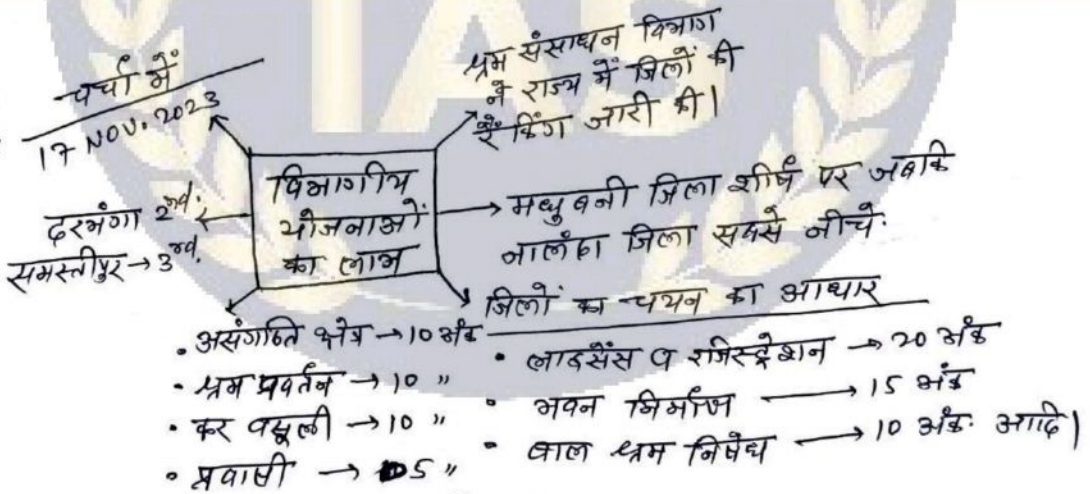 IAS
चर्चा में
17 NOV. 2023
श्रम संसाधन विभाग
ने राज्य में जिलों की
रैंकिंग जारी की।
विभागीय
योजनाओं
का लाभ
दरभंगा 2nd.
समस्तीपुर → 3rd.
→ मधुबनी जिला शीर्ष पर जबकि
नालंदा जिला सबसे नीचे.
जिलों का चयन का आधार
• असंगठित क्षेत्र → 10 अंक
• श्रम प्रवर्तन → 10 "
• कर वसूली → 10 "
• प्रवासी → 05 "
• लाइसेंस व रजिस्ट्रेशन → 20 अंक
• भवन निर्माण → 15 अंक
• बाल श्रम निषेध → 10 अंक. आदि।